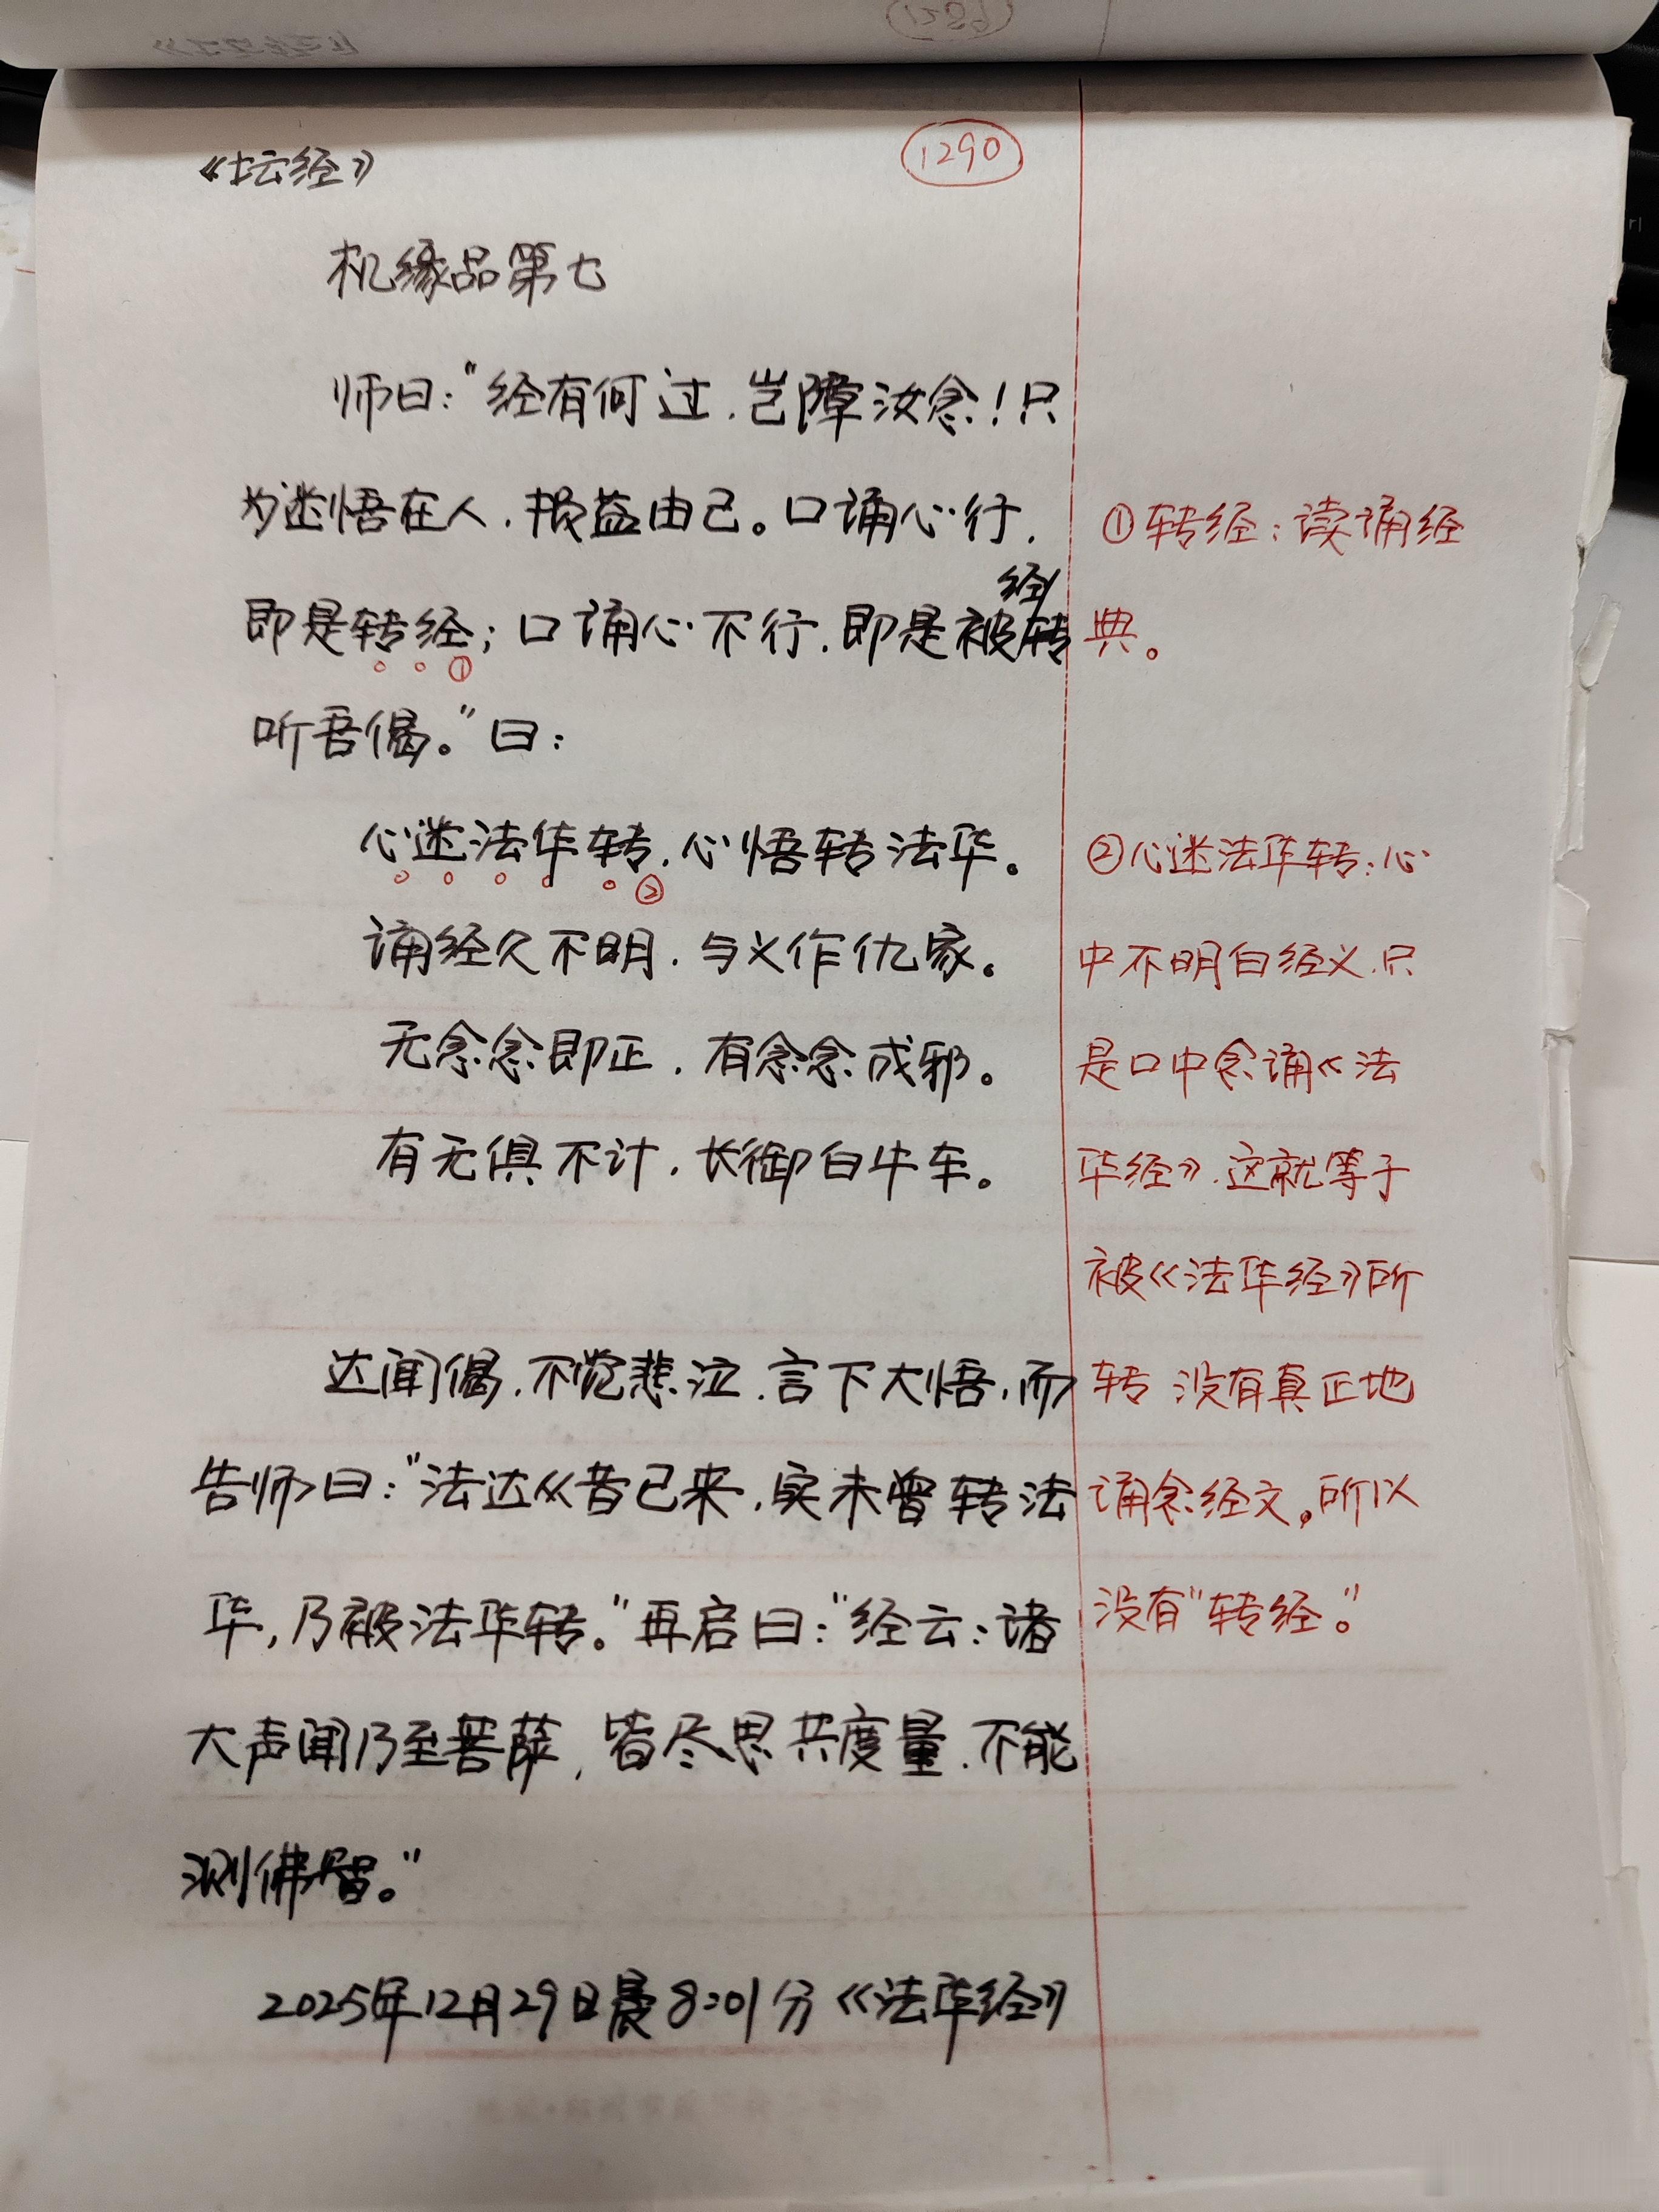 《坛经》
1290
机缘品第七
师曰：“经有何过，岂障汝念！只
为迷悟在人，损益由己。口诵心行，
即是转经①；口诵心不行，即是被经转
听吾偈。”曰：
心迷法华转②，心悟转法华。
诵经久不明，与义作仇家。
无念念即正，有念念成邪。
有无俱不计，长御白牛车。
达闻偈，不觉悲泣，言下大悟，而
告师曰：“法达从昔已来，实未曾转法
华，乃被法华转。”再启曰：“经云：诸
大声闻乃至菩萨，皆尽思共度量，不能
测佛智。”
2025年12月29日晨8:01分《法华经》
①转经：读诵经
典。
②心迷法华转：心
中不明白经义，只
是口中念诵《法
华经》，这就等于
被《法华经》所
转 没有真正地
诵念经文。所以
没有“转经”。